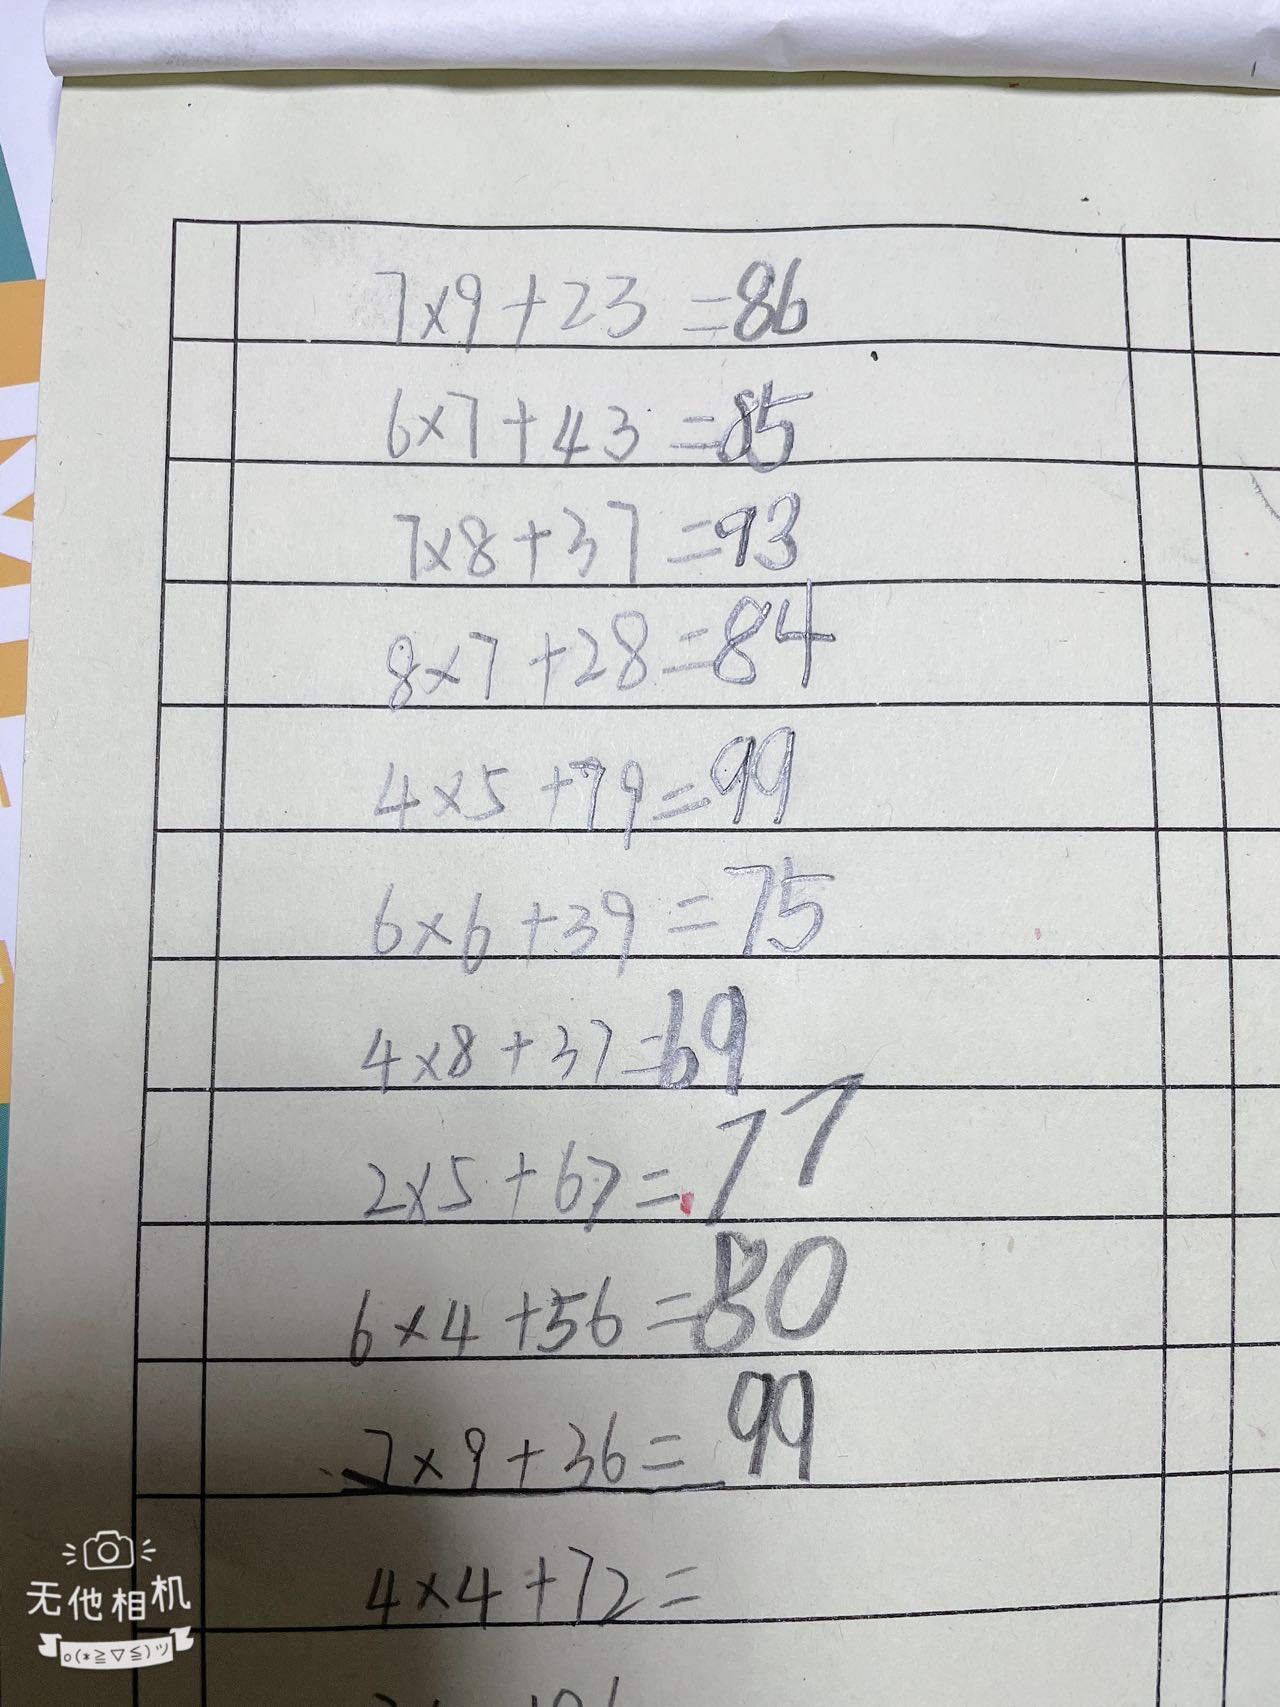 7×9+23=86
6×7+43=85
7×8+37=93
8×7+28=84
4×5+79=99
6×6+39=75
4×8+37=69
2×5+67=77
6×4+56=80
7×9+36=99
4×4+72=
无他相机
o(*≧▽≦)ツ